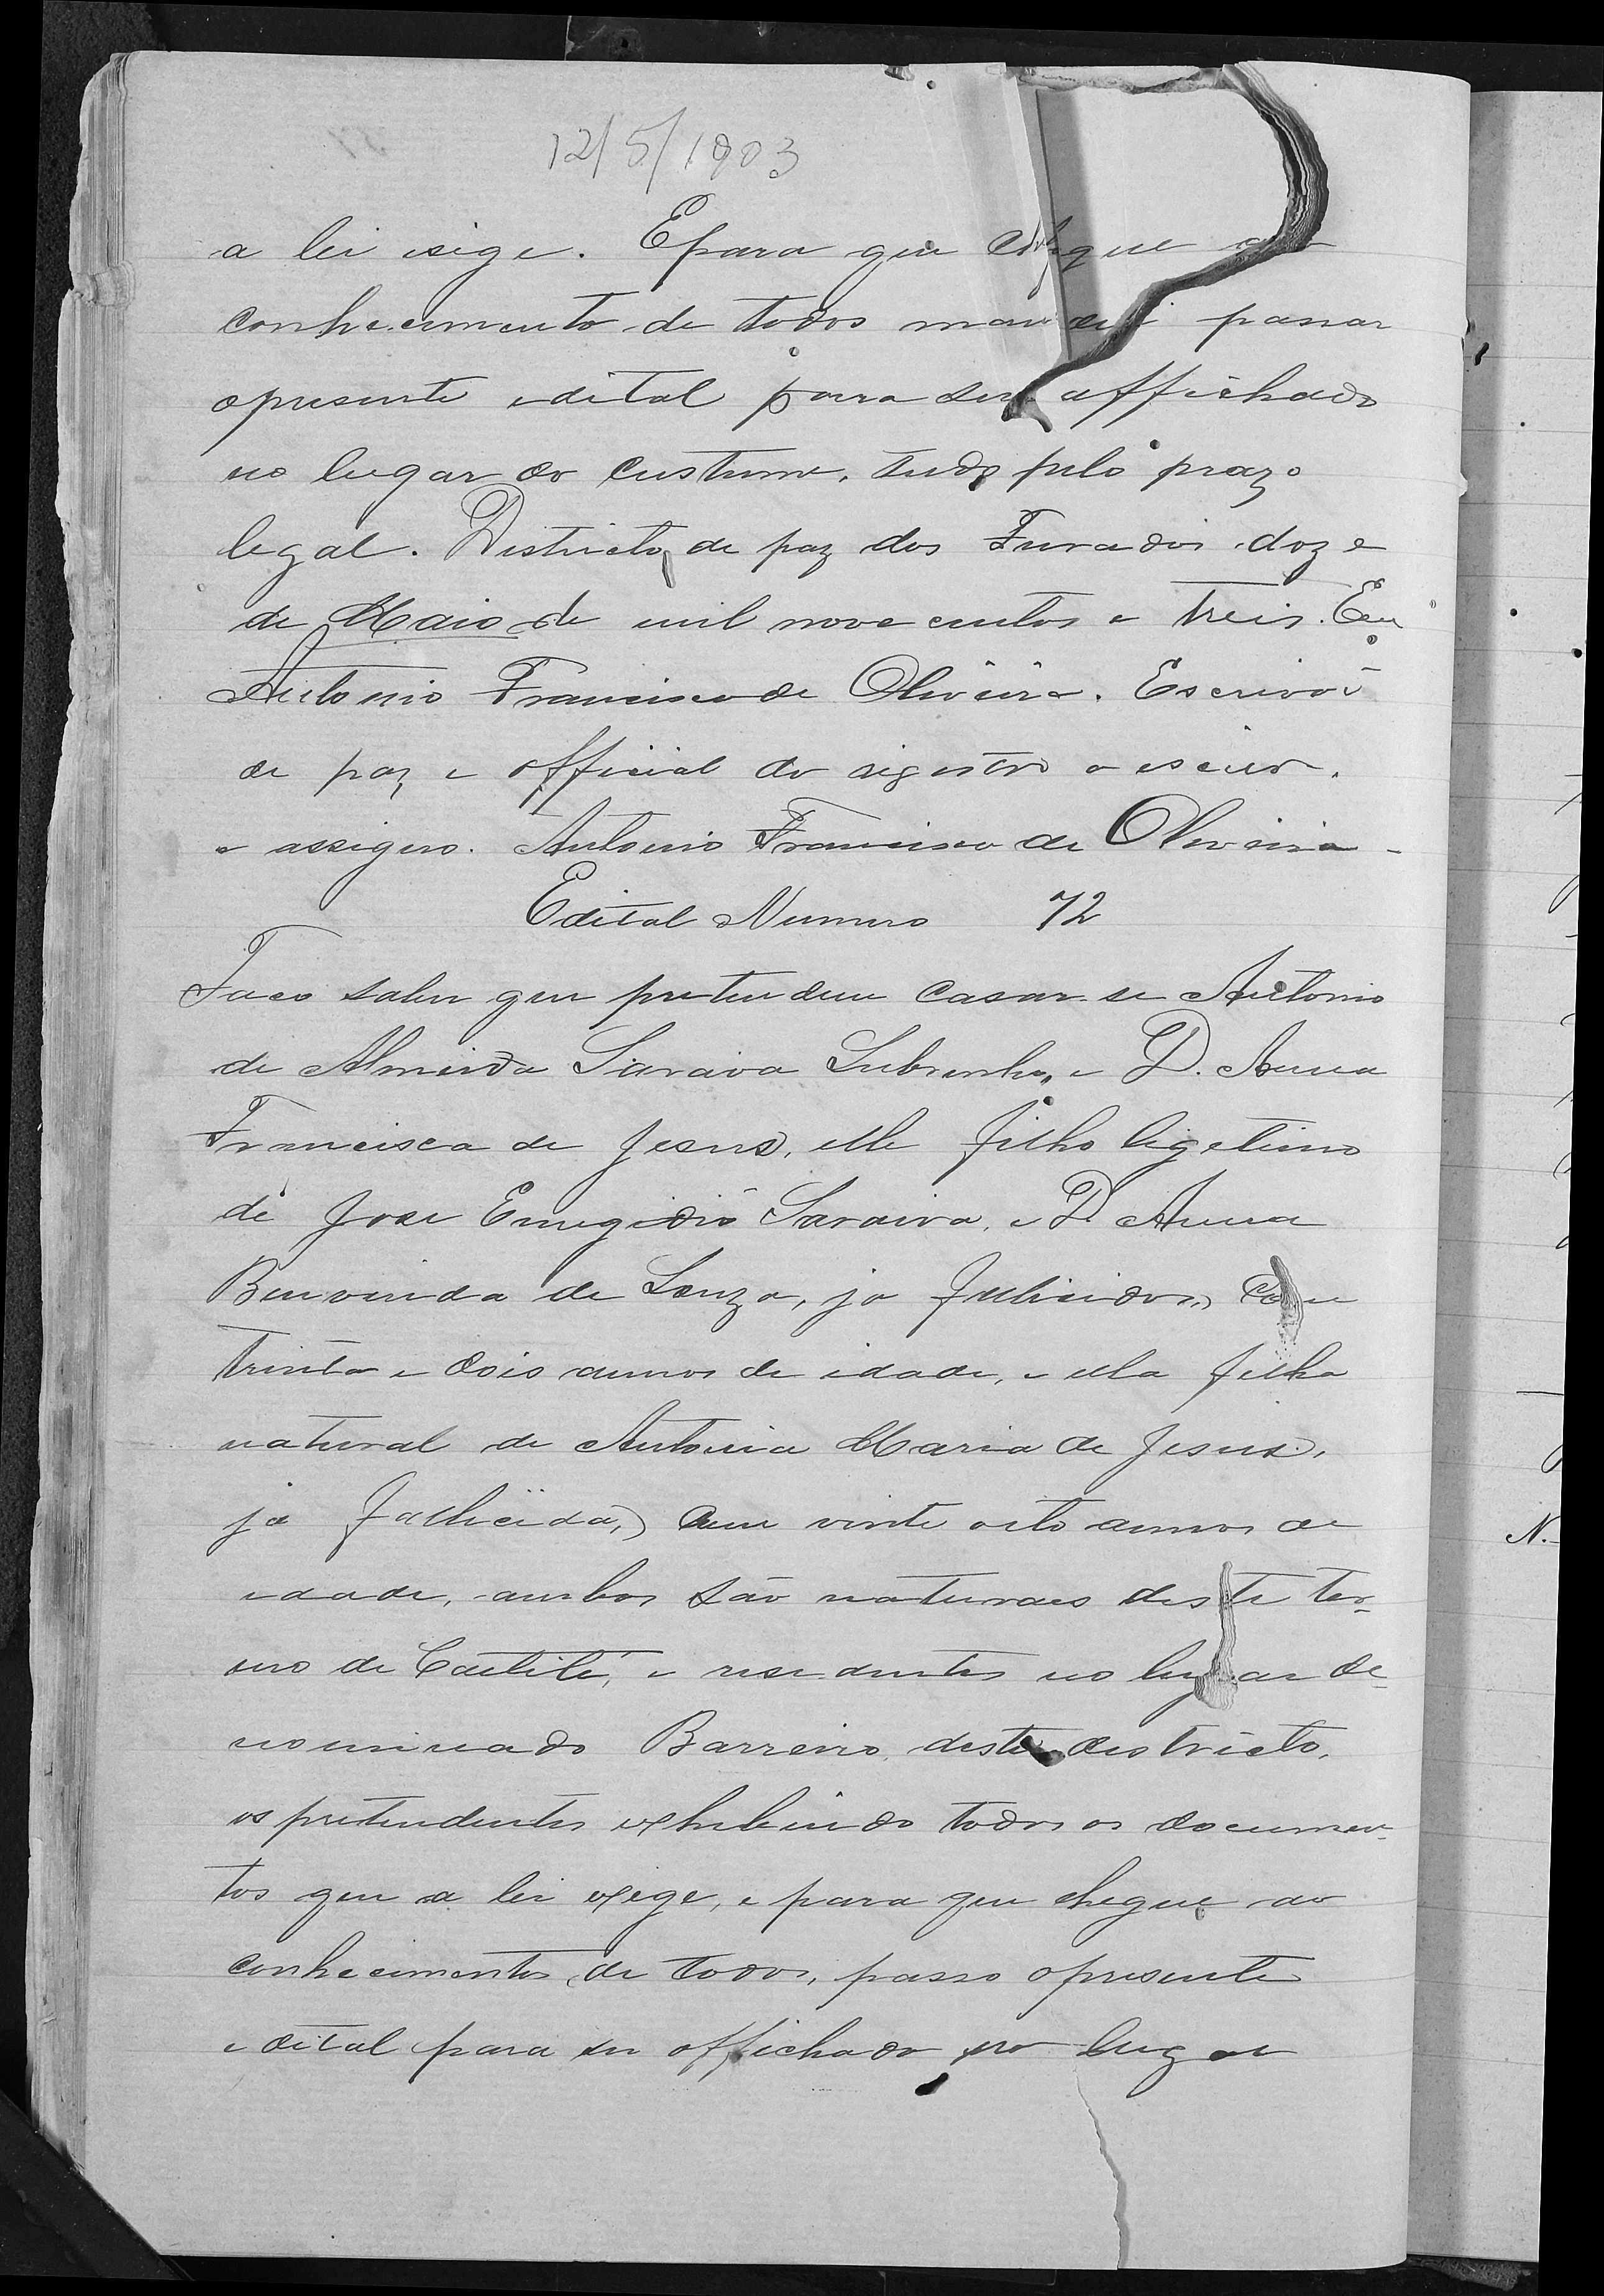 12/5/1903
a lei esige. E para que chegue ao
conhecimento de todos mandei passar
o presente edital para ser affichado
no lugar do custume, tudo pelo prazo
legal. Districto de paz dos Furados doze
de Maio de mil nove centos e treis. Eu
Antonio Francisco de Oliveira. Escrivaõ
de paz e official do registro o escrevi.
e assigno. Antonio Francisco de Oliveira -
Edital Numero 72
Faco saber que pretendem casar-se Antonio
de Almeida Saraiva Subrinho, e D. Anna
Francisca de Jesus, elle filho ligetimo
de Jose Emegidio Saraiva, e D. Anna
Benvinda de Souza, ja fallicidos, com
trinta e dois annos de idade, e ella filha
natural de Antonia Maria de Jesus,
ja fallicida, com vinte oito annos de
idade, ambos são naturaes deste ter-
mo de Caetité, e residentes no lugar de-
nominado Barreiro, deste districto,
os pretendentes exhibindo todos os documen-
tos que a lei exige, e para que chegue ao
conhecimento, de todos, passo o presente
edital para ser affichado no lugar
N.